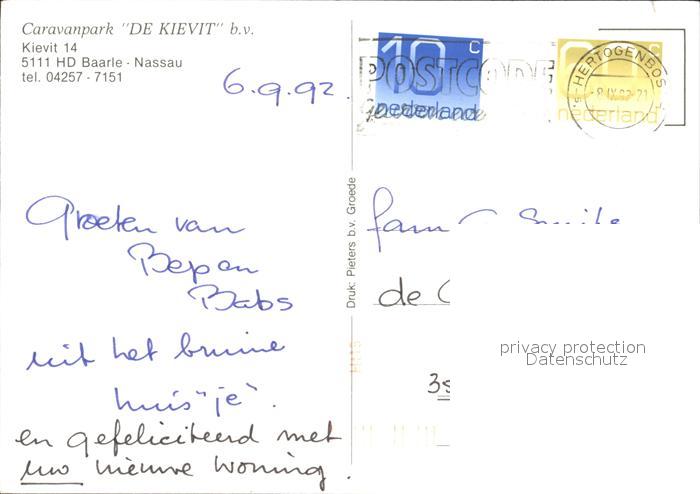 Caravanpark "DE KIEVIT" b.v.
Kievit 14
5111 HD Baarle - Nassau
tel. 04257 - 7151
6.9.92.
Groeten van
Bep en
Babs
uit het bruine
huis"je".
en gefeliciteerd met
uw nieuwe woning.
Druk: Pieters b.v. Groede
10 C
nederland
POSTCODE
C
nederland
's-HERTOGENBOS
fam
de
privacy protection
Datenschutz